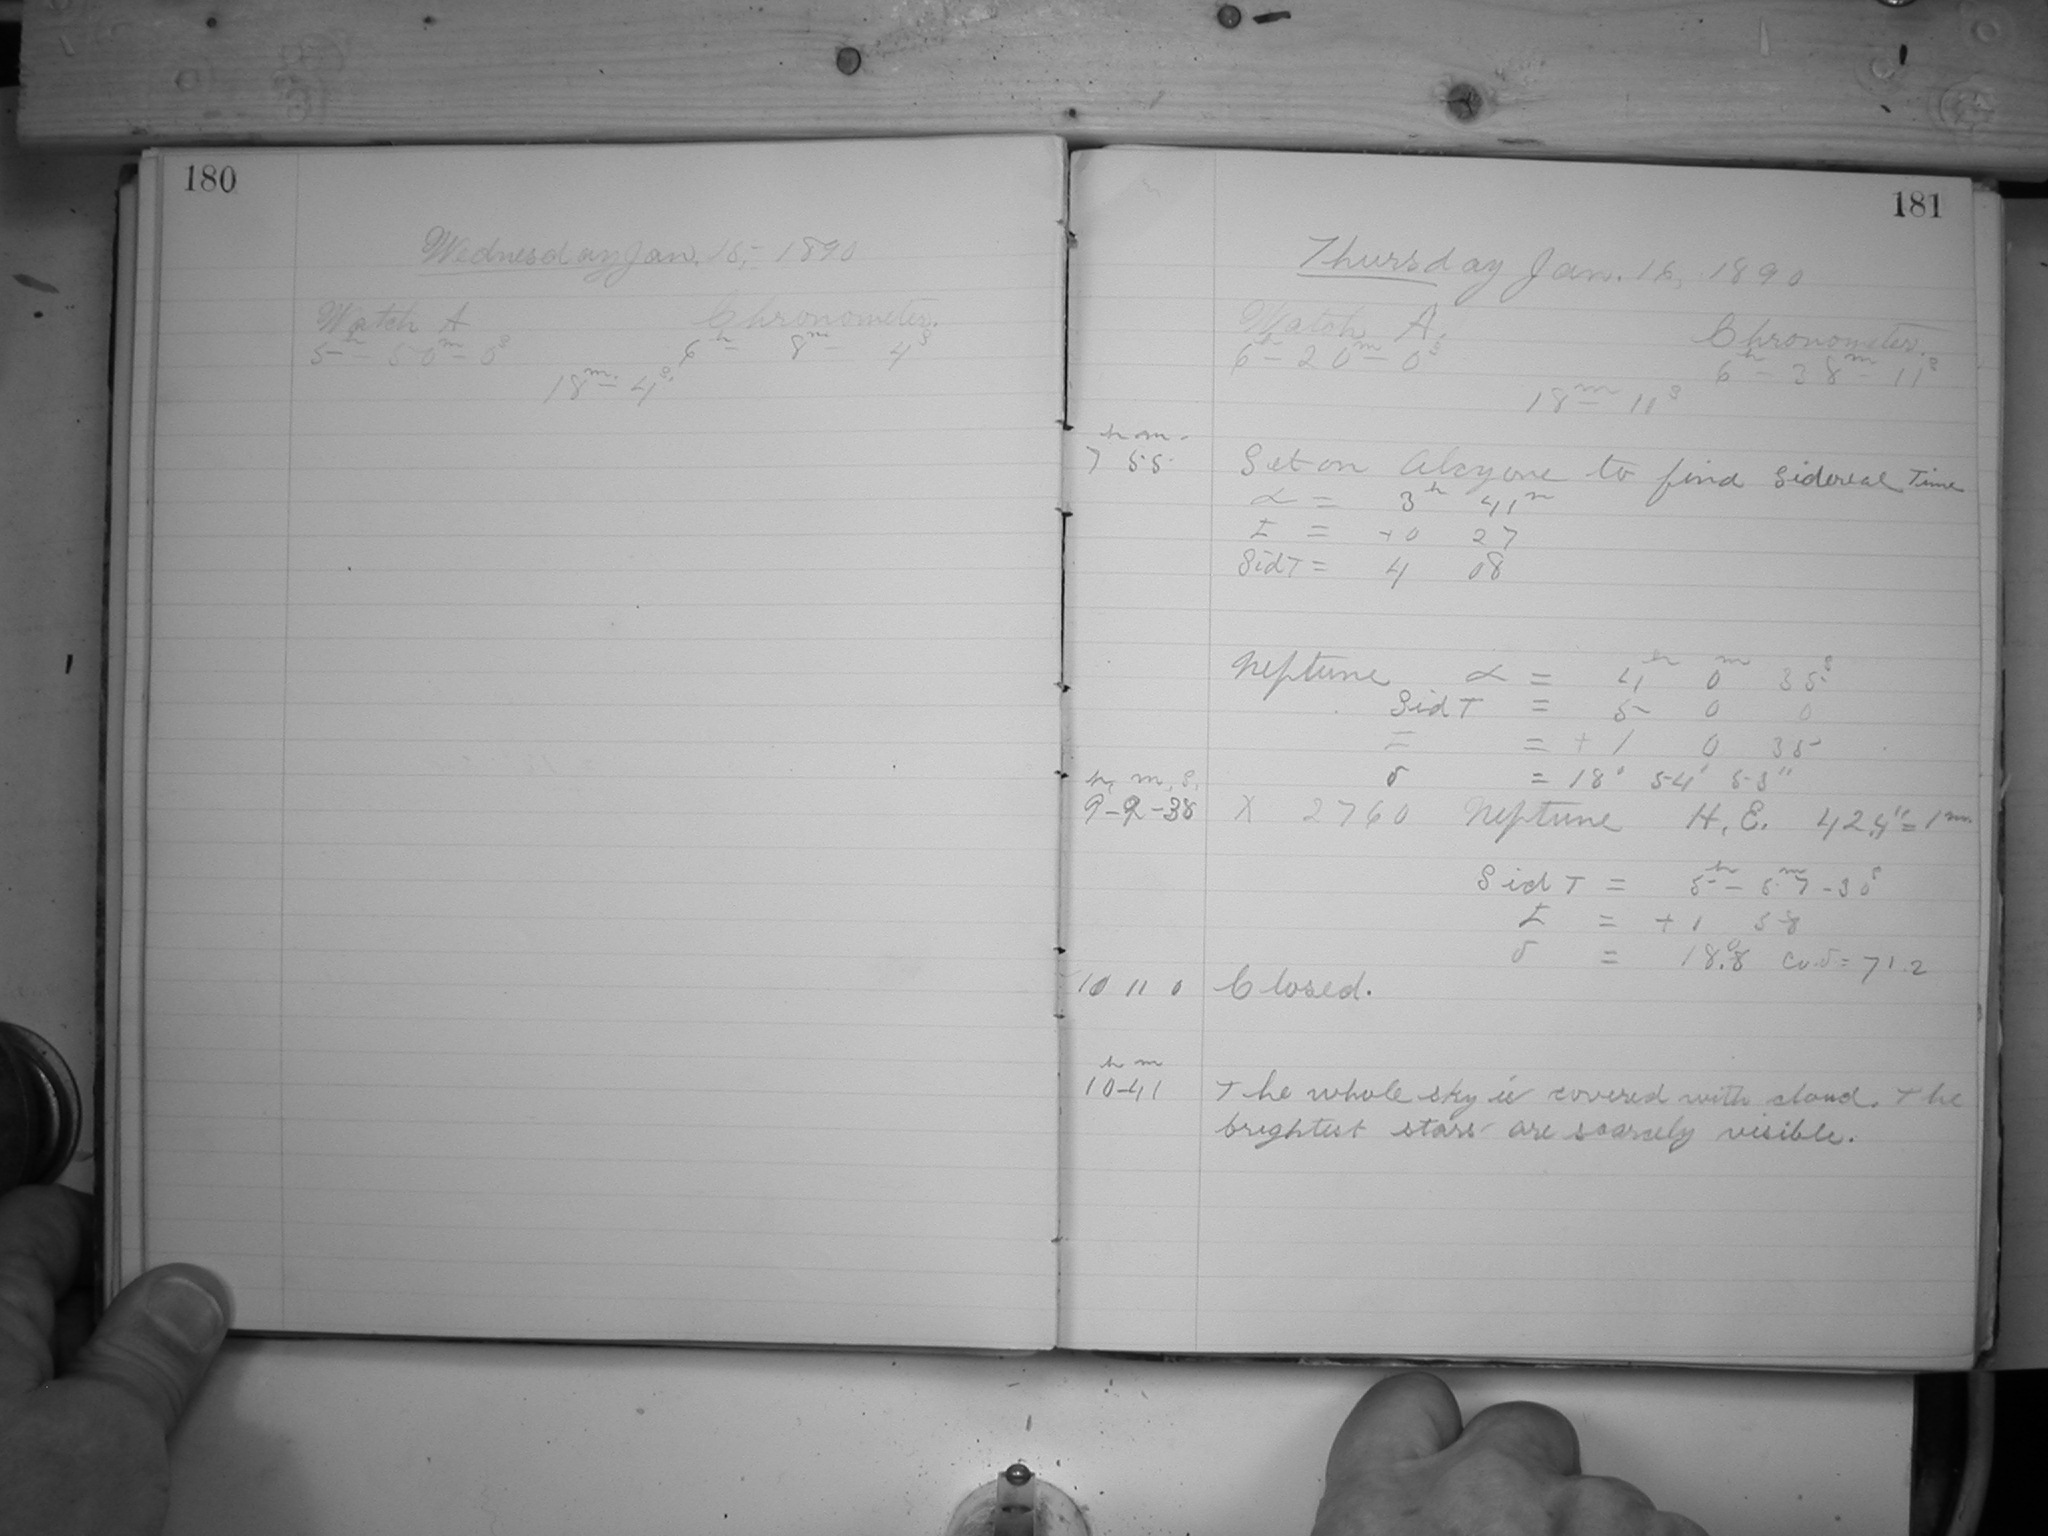 180
Wednesday Jan. 15, 1890
Watch A Chronometer.
5h - 50m - 0s 6h - 8m - 4s
18m - 4s.
181
Thursday Jan. 16, 1890
Watch A. Chronometer.
6h - 20m - 0s 6h - 38m - 11s
18m - 11s
h m
7 55 Set on Alcyone to find Sidereal Time
α = 3h 41m
t = +0 27
Sid T = 4 08
Neptune α = 4h 0m 35s
Sid T = 5 0 0
= + 1 0 35
h, m, s,
δ = 18° 54' 53"
9-2-38 X 2760 Neptune H.E. 42.4" = 1mm
Sid T = 5h - 57m - 30s
t = + 1 58
δ = 18.°8 co δ = 71.2
10 11 0 Closed.
h m
10-41 The whole sky is covered with cloud. The
brightest stars are scarcely visible.